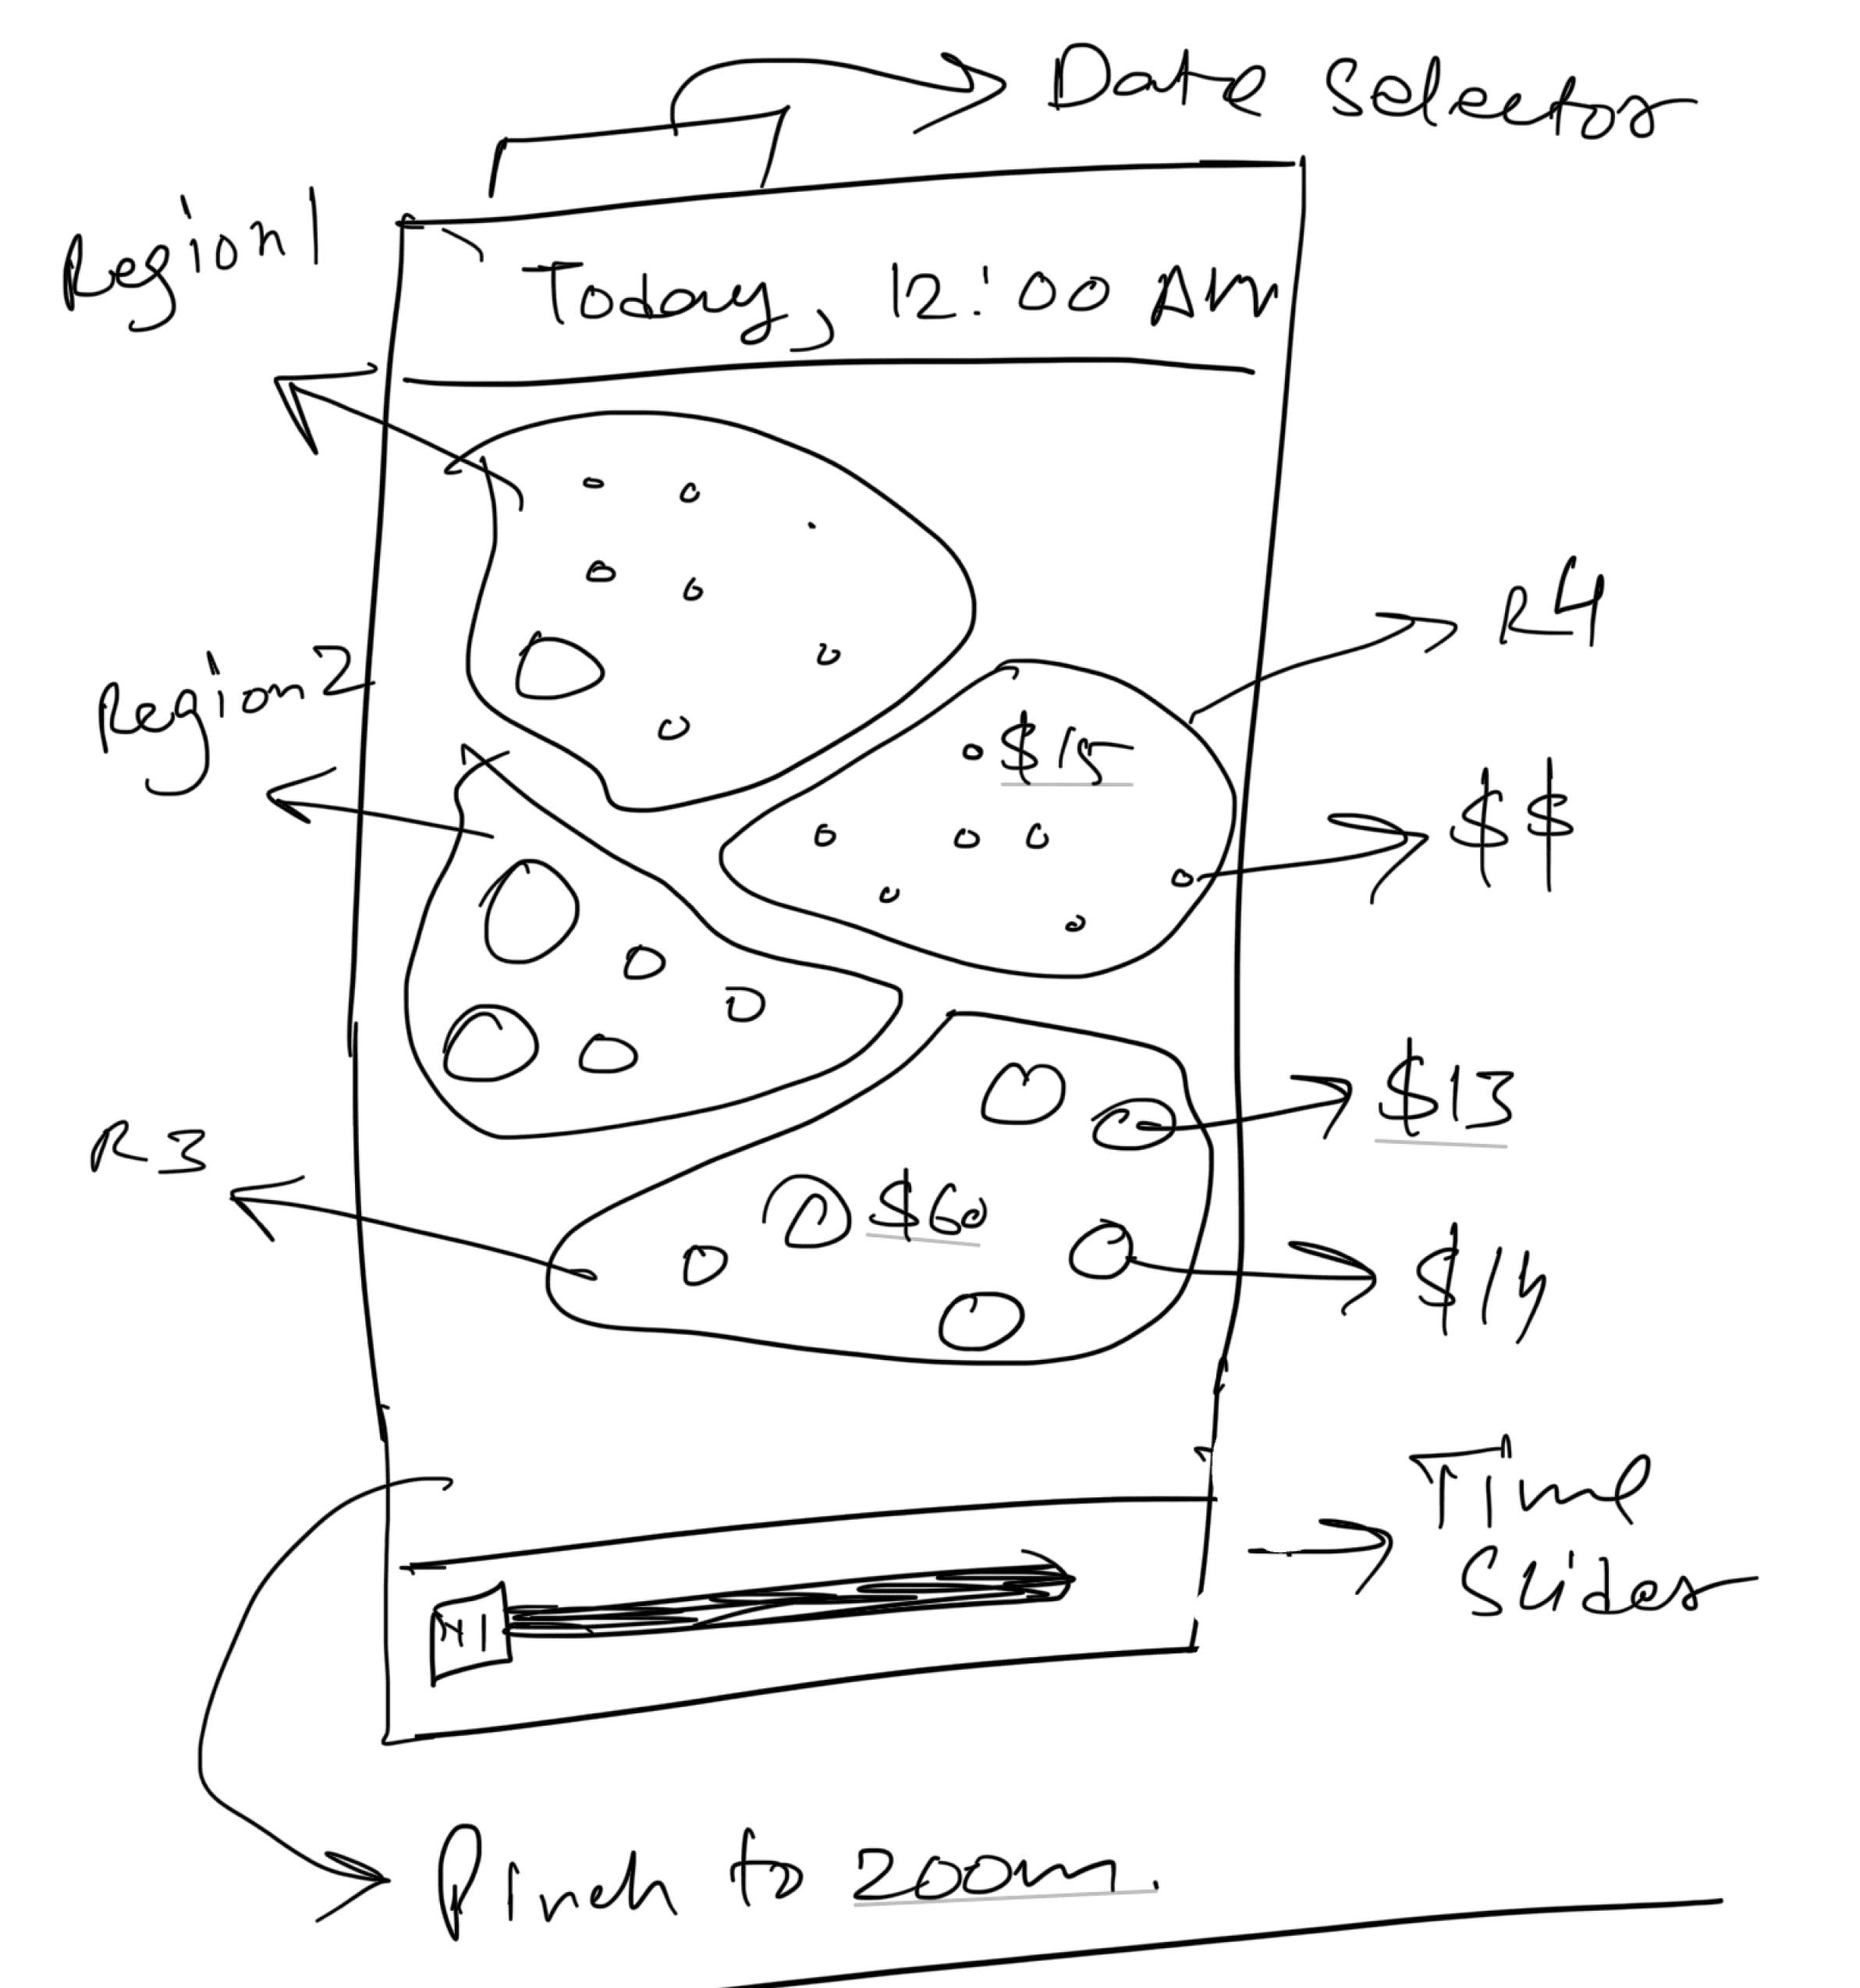 Date Selector
Region1
Today, 12:00 AM
R4
Region2
$15
$$
$13
R3
$60
$14
Time
Slider
Pinch to zoom.